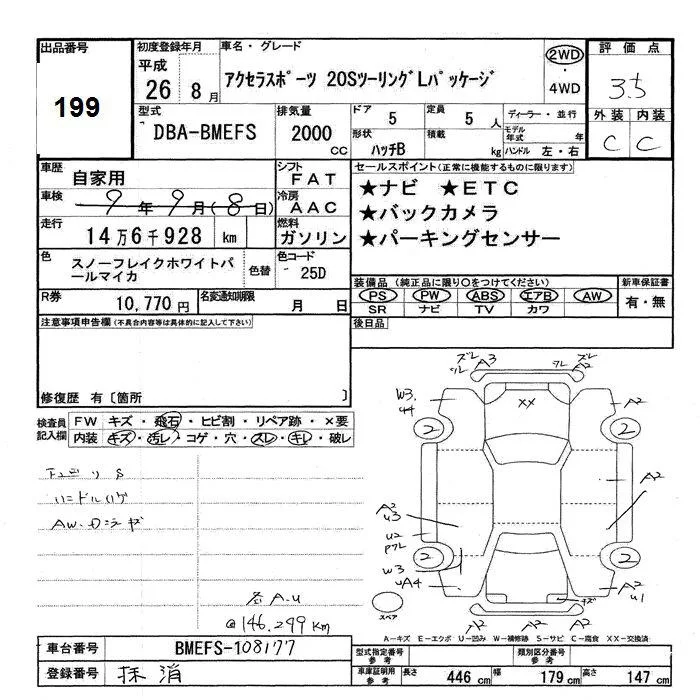 出品番号
199
初度登録年月
平成
26 8月
車名・グレード
アクセラスポーツ 20SツーリングLパッケージ
2WD
4WD
評価点
3.5
外装 内装
C C
型式
DBA-BMEFS
排気量
2000
CC
ドア 5
定員 5 人
形状
ハッチB
積載
kg
ディーラー・並行
モデル年式 年
ハンドル 左・右
車歴
自家用
シフト
FAT
車検
9年9月(8日)
冷房
AAC
走行
14万6千928 km
燃料
ガソリン
色
スノーフレイクホワイトパールマイカ
色替
色コード
25D
R券
10,770円
名変通知期限
月 日
セールスポイント(正常に機能するものに限ります)
★ナビ ★ETC
★バックカメラ
★パーキングセンサー
装備品(純正品に限り○をつけてください)
PS PW ABS エアB AW
SR ナビ TV カワ
新車保証書
有・無
後日品
注意事項申告欄(不具合内容等は具体的に記入して下さい)
修復歴 有〔箇所 〕
検査員記入欄
FW キズ・飛石・ヒビ割・リペア跡・×要
内装 キズ・汚レ・コゲ・穴・スレ・キレ・破レ
ハンドルハゲ
A-U
@146.299km
ズレ
A3
ズレ
A2
W3.
44
A2
XX
2
2
A2
A2
U3
U2
A2
W3
UA4
2
2
A2
U1
キズ
A2
A2
スペア
A-キズ E-エクボ U-凹み W-補修跡 S-サビ C-腐食 XX-交換済
車台番号
BMEFS-108177
登録番号
抹消
型式指定番号
参考
類別区分番号
参考
車庫証明用
参考
長さ 446 cm 幅 179 cm 高さ 147 cm